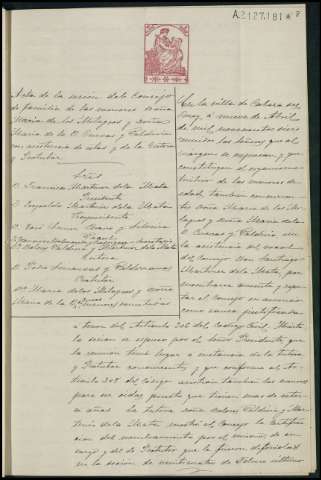 A.2127.181 *
Acta de la sesión del Consejo
de familia de las menores doña
María de los Milagros y doña
María de la O Cuevas y Valdivia
con asistencia de estas y de la Tutora
y Protutor
Señores
D. Francisco Martinez de la Mata
Presidente
D. Leopoldo Martinez de la Mata
Vicepresidente
D. José
Vocal
Martinez de la Mata
Tutora
D. Pedro y Valderrama
Protutor
Dña María de los Milagros y doña
María de la O, menores
En la villa de
a nueve de Abril
de mil novecientos diez
reunidos los Señores que al
margen se expresan, y que
constituyen el organismo
tutelar de las menores de
edad, también
tes doña María de los Mi-
lagros y doña María de la
O Cuevas y Valdivia sin
la asistencia del vocal
del Consejo Don Santiago
Martinez de la Mata, por
encontrarse ausente y repu-
tar el Consejo su ausencia
como causa justificada
a tenor del Artículo 306 del Código Civil. Abierta
la sesión se expuso por el Señor Presidente que
la reunión tiene lugar a instancia de la tutora
y Protutor y que conforme al Ar-
tículo 308 del Código asistian también las menores
para ser oidas puesto que tienen mas de cator-
ce años. La tutora doña Dolores Valdivia y Mar-
tinez de la Mata mostró al Consejo la Certifica-
cion del nombramiento por el mismo de su
cargo y del de Protutor que le fueron
en la sesión de veinticuatro de Febrero último